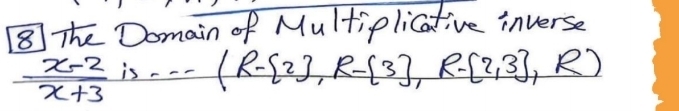 8 The Domain of Multiplicative inverse
x-2/x+3 is ---- (R-{2}, R-{3}, R-{2,3}, R)